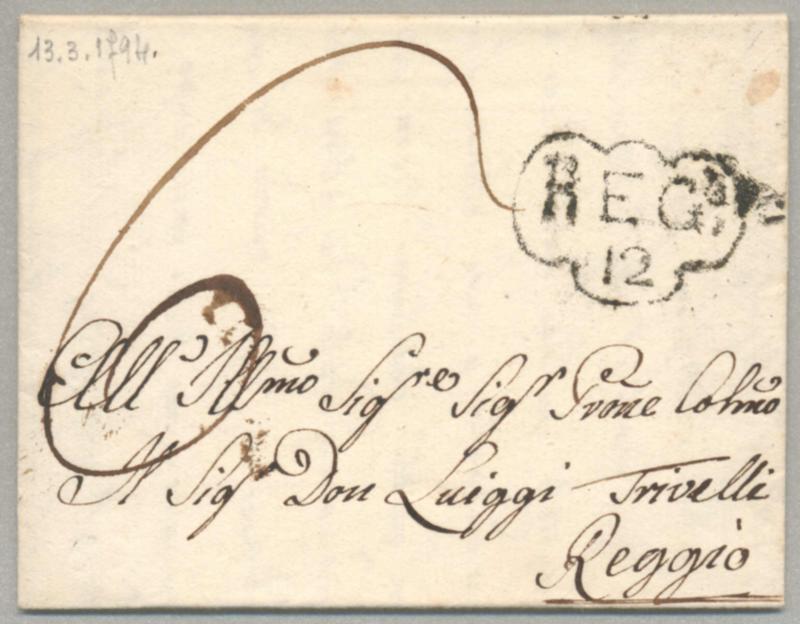 13.3.1794.
REGº
12
All' Illmo Sigre Sigr Prone Colmo
Il Sigr Don Luiggi Trivelli
Reggio